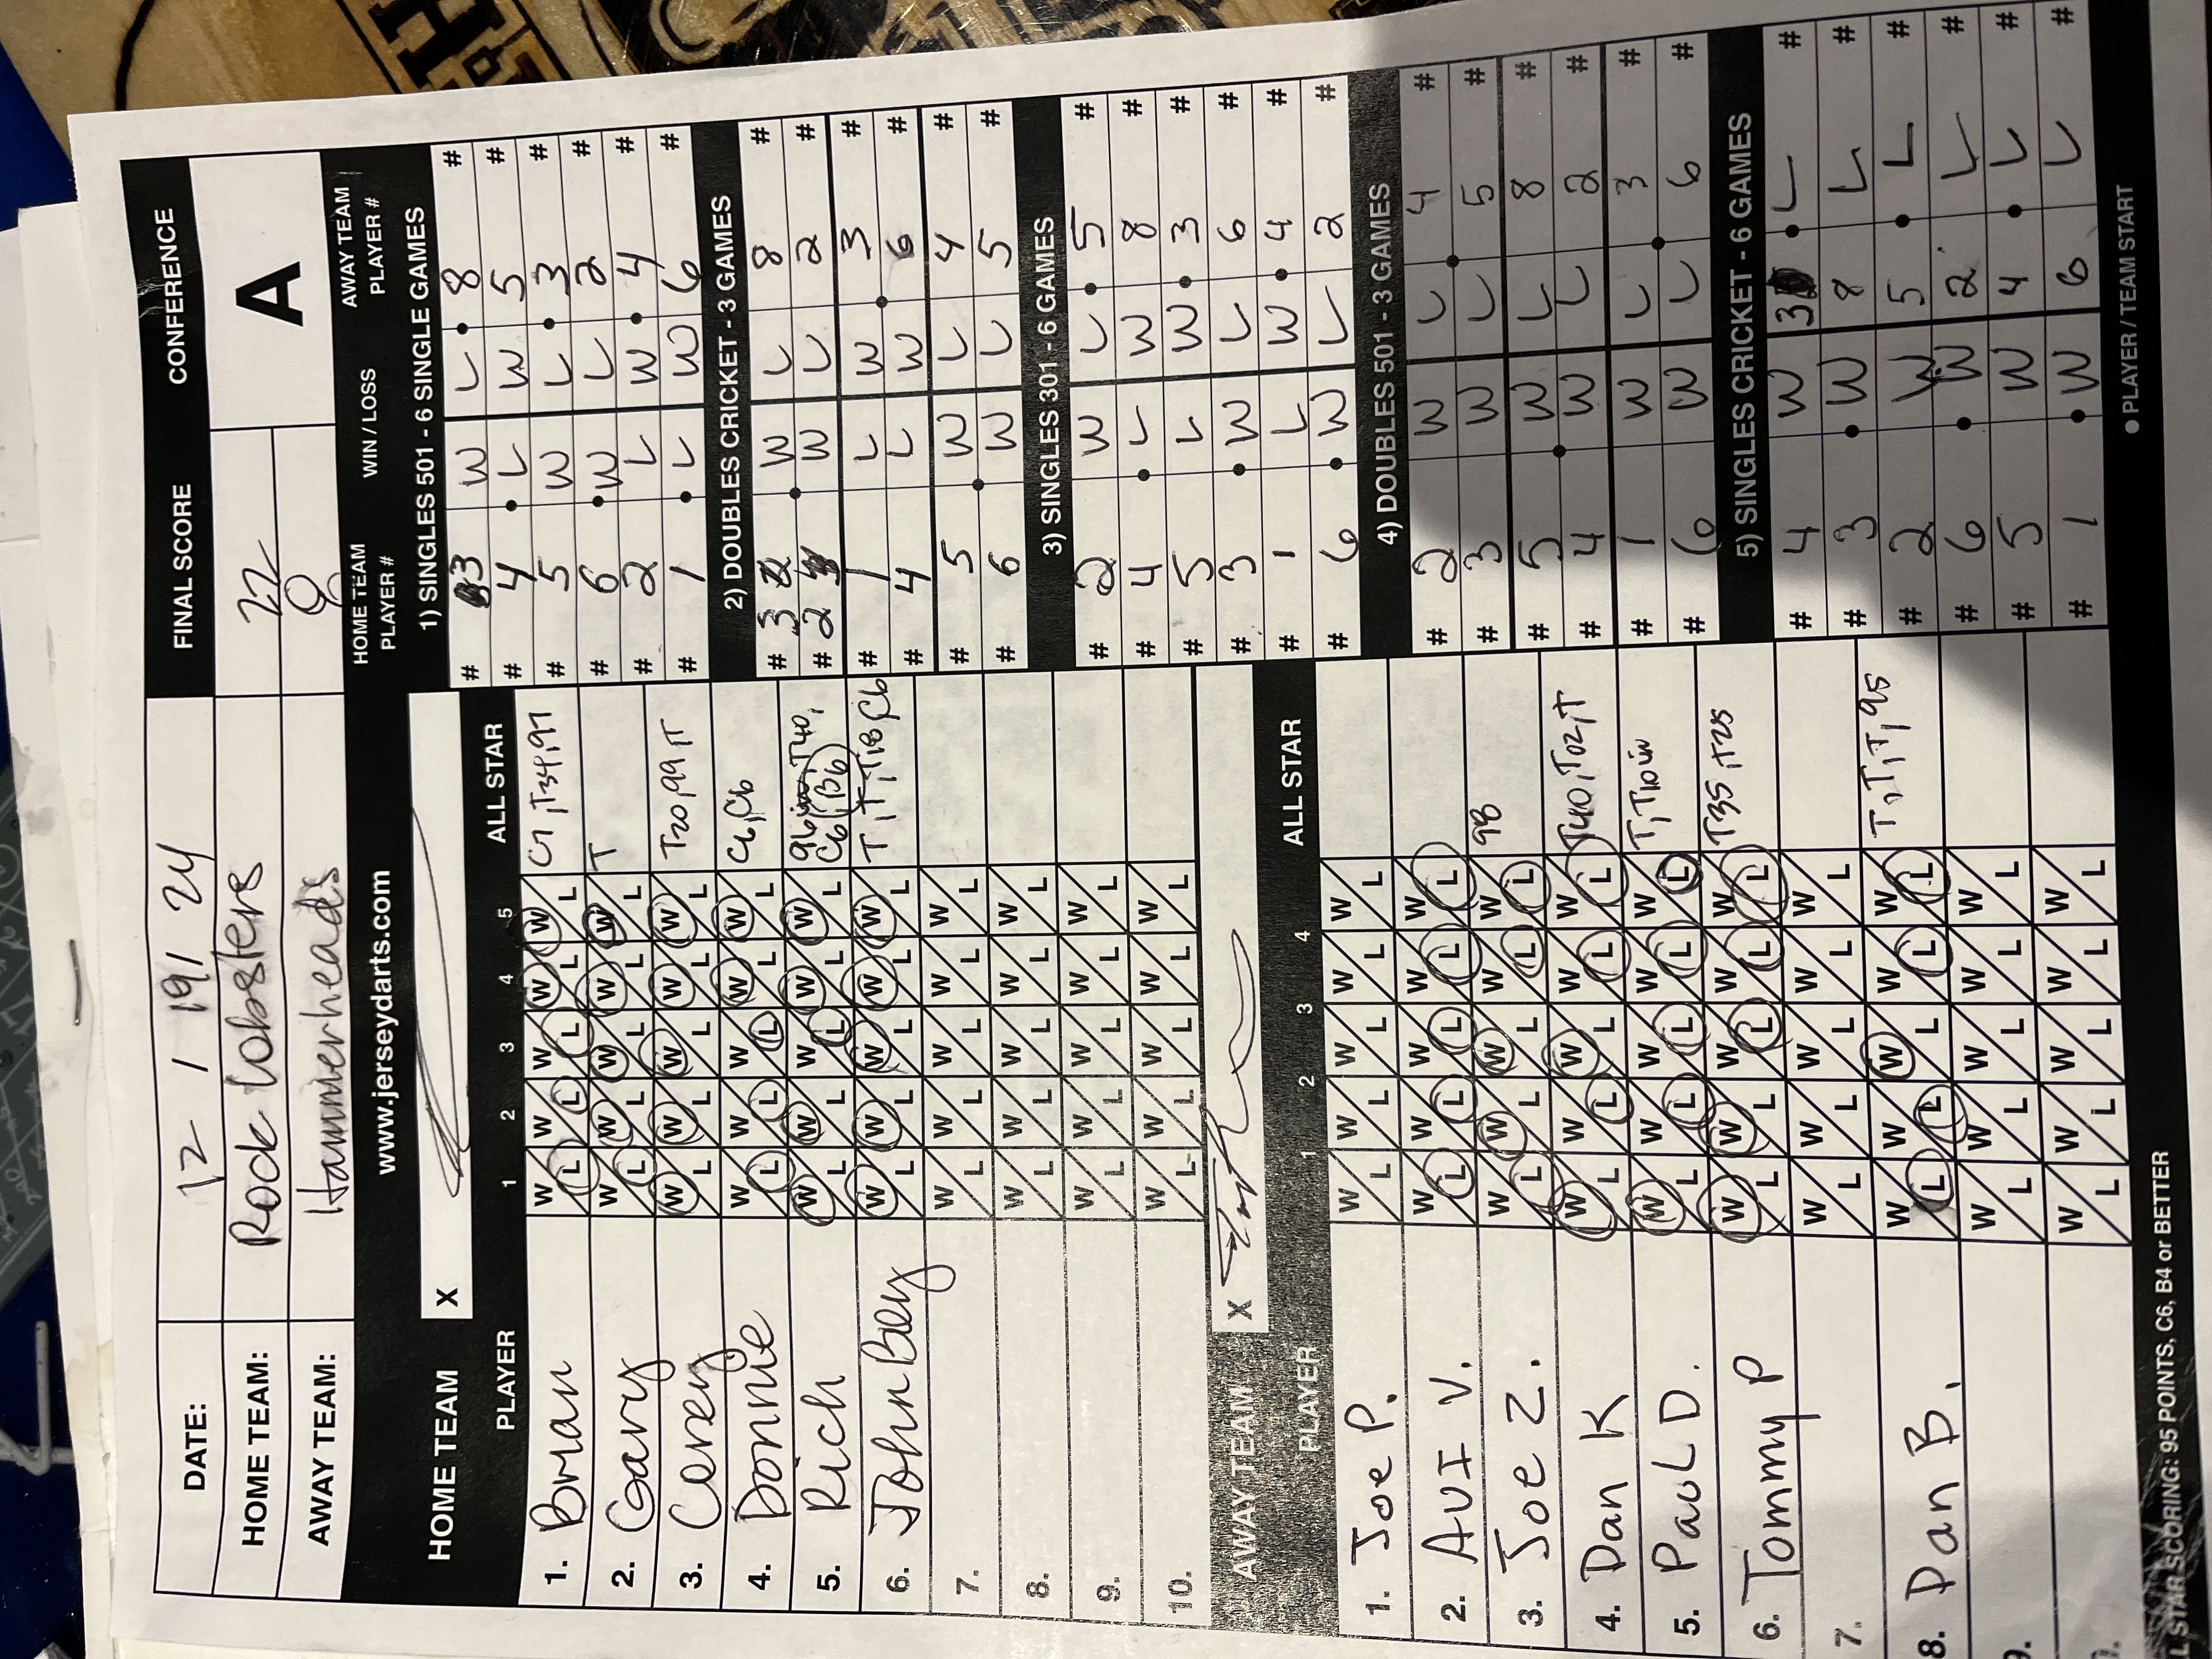 DATE: 12 / 19 / 24 FINAL SCORE CONFERENCE
HOME TEAM: Rock Lobsters 22 A
AWAY TEAM: Hammerheads 8
www.jerseydarts.com HOME TEAM PLAYER # WIN / LOSS AWAY TEAM PLAYER #
HOME TEAM X
PLAYER 1 2 3 4 5 ALL STAR
1. Brian W/L W/L W/L W/L W/L C7, T34, 97
2. Gary W/L W/L W/L W/L W/L T
3. Corey W/L W/L W/L W/L W/L T20, 99, T
4. Donnie W/L W/L W/L W/L W/L C6, C6
5. Rich W/L W/L W/L W/L W/L 96 T40, C6 B6
6. John Bey W/L W/L W/L W/L W/L T, T, T18, C6
7. W/L W/L W/L W/L W/L
8. W/L W/L W/L W/L W/L
9. W/L W/L W/L W/L W/L
10. W/L W/L W/L W/L W/L
AWAY TEAM X
PLAYER 1 2 3 4 ALL STAR
1. Joe P. W/L W/L W/L W/L W/L
2. AVI V. W/L W/L W/L W/L W/L
3. Joe Z. W/L W/L W/L W/L W/L 98
4. Dan K W/L W/L W/L W/L W/L T40, T02, T
5. Paul D. W/L W/L W/L W/L W/L T, T10 in
6. Tommy P W/L W/L W/L W/L W/L T35, T25
7. W/L W/L W/L W/L W/L
8. Dan B. W/L W/L W/L W/L W/L T, T, T, 95
9. W/L W/L W/L W/L W/L
W/L W/L W/L W/L W/L
L STAR SCORING: 95 POINTS, C6, B4 or BETTER
1) SINGLES 501 - 6 SINGLE GAMES
# 3 W L 8 #
# 4 L W 5 #
# 5 W L 3 #
# 6 W L 2 #
# 2 L W 4 #
# 1 L W 6 #
2) DOUBLES CRICKET - 3 GAMES
# 3 W L 8 #
# 2 W L 2 #
# 1 L W 3 #
# 4 L W 6 #
# 5 W L 4 #
# 6 W L 5 #
3) SINGLES 301 - 6 GAMES
# 2 W L 5 #
# 4 L W 8 #
# 5 L W 3 #
# 3 W L 6 #
# 1 L W 4 #
# 6 W L 2 #
4) DOUBLES 501 - 3 GAMES
# 2 W L 4 #
# 3 W L 5 #
# 5 W L 8 #
# 4 W L 2 #
# 1 W L 3 #
# 6 W L 6 #
5) SINGLES CRICKET - 6 GAMES
# 4 W 3 L #
# 3 W 8 L #
# 2 W 5 L #
# 6 W 2 L #
# 5 W 4 L #
# 1 W 6 L #
● PLAYER / TEAM START